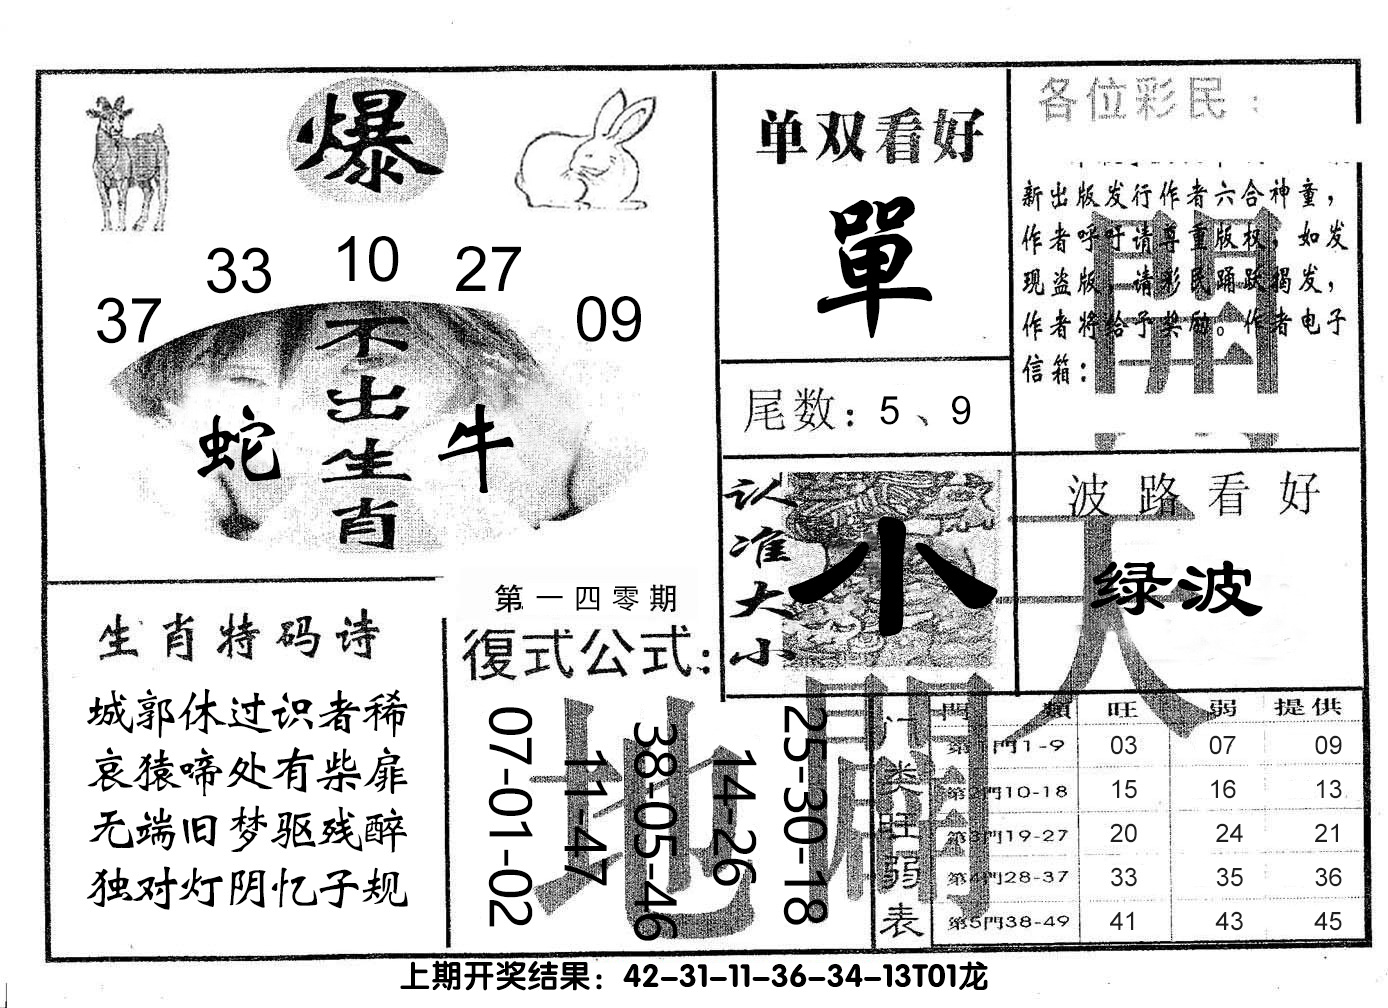 爆
37
33
10
27
09
不出生肖
蛇
牛
单双看好
單
尾数：5、9
各位彩民：
新出版发行作者六合神童，
作者呼吁请尊重版权，如发
现盗版，请彩民踊跃揭发，
作者将给予奖励。作者电子
信箱：
認准大小
小
波路看好
绿波
天
開
地
開
生肖特码诗
城郭休过识者稀
哀猿啼处有柴扉
无端旧梦驱残醉
独对灯阴忆子规
第一四零期
復式公式：
07-01-02
11-47
38-05-46
14-26
25-30-18
门类旺弱表
門 類 旺 弱 提供
第1門1-9 03 07 09
第2門10-18 15 16 13
第3門19-27 20 24 21
第4門28-37 33 35 36
第5門38-49 41 43 45
上期开奖结果：42-31-11-36-34-13T01龙